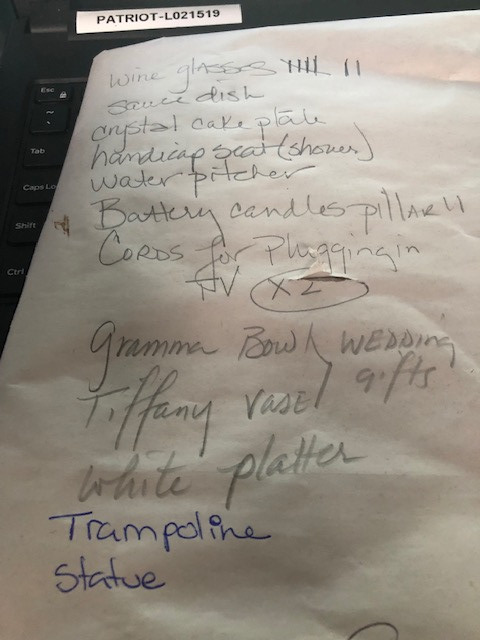 PATRIOT-L021519
Esc
~
`
Tab
Caps Lo
Shift
Ctrl
wine glasses 𝍸 II
sauce dish
crystal cake plate
handicap seat (shower)
water pitcher
2 Battery candles-pillar II
Cords for Plugging in
TV X2
Gramma Bowl WEDDING
gifts
Tiffany vase
white platter
Trampoline
Statue